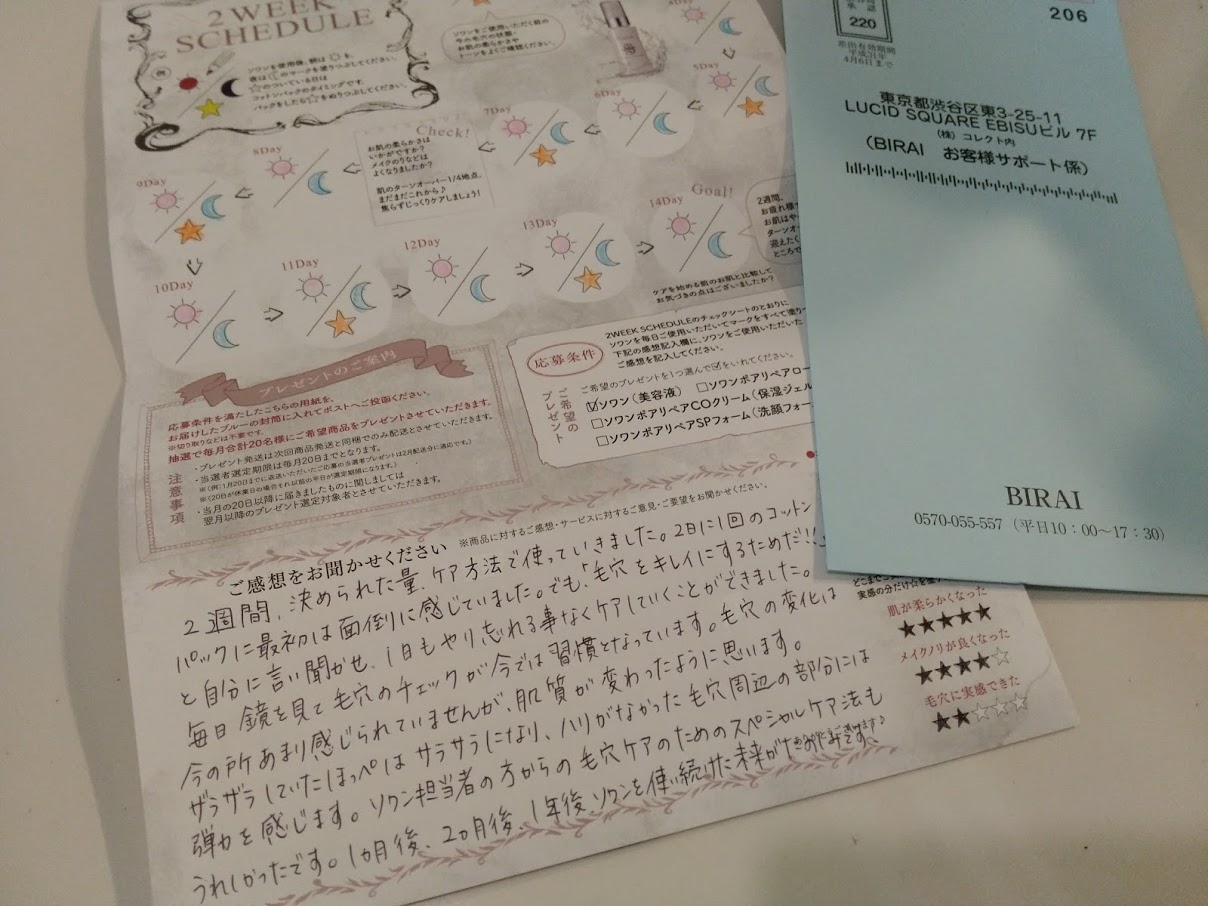 2WEEK
SCHEDULE
ソワンを使用後、朝は
夜は のマークを塗りつぶしてください。
のついている日は
コットンパックのタイミングです。
パックをしたら をぬりつぶしてください。
ソワンをご使用いただく前の
今の毛穴の状態・
お肌の柔らかさや
トーンをよくご確認ください。
4Day
5Day
6Day
7Day
Check!
お肌の柔らかさは
いかがですか?
メイクのりなどは
よくなりましたか?
肌のターンオーバー1/4地点。
まだまだこれから♪
焦らずじっくりケアしましょう!
8Day
9Day
10Day
11Day
12Day
13Day
14Day
Goal!
2週間、
お疲れ様
お肌はや
ターンオー
迎えたく
ところで
ケアを始める前のお肌と比較して
お気づきの点はございましたか?
プレゼントのご案内
応募条件を満たしたこちらの用紙を、
お届けしたブルーの封筒に入れてポストへご投函ください。
※切り取りなどは不要です。
抽選で毎月合計20名様にご希望商品をプレゼントさせていただきます。
注意事項
・プレゼント発送は次回商品発送と同梱でのみ配送とさせていただきます。
・当選者選定期限は毎月20日までとなります。
※(例:1月20日までに返送いただいたご応募の当選者プレゼントは2月配送分に適応です。)
※(20日が休業日の場合それ以前の平日が選定期限になります。)
・当月の20日以降に届きましたものに関しましては
翌月以降のプレゼント選定対象者とさせていただきます。
応募条件
2WEEK SCHEDULEのチェックシートのとおりに
ソワンを毎日ご使用いただいてマークをすべて塗り
下記の感想記入欄に、ソワンをご使用いただいた
ご感想を記入してください。
ご希望のプレゼント
ご希望のプレゼントを1つ選んで☑をいれてください。
☑ソワン(美容液) □ソワンポアリペアロー
□ソワンポアリペアCOクリーム(保湿ジェル
□ソワンポアリペアSPフォーム(洗顔フォー
ご感想をお聞かせください ※商品に対するご感想・サービスに対するご意見・ご要望をお聞かせください。
2週間、決められた量、ケア方法で使っていきました。2日に1回のコットン
パックに最初は面倒に感じていました。でも、「毛穴をキレイにするためだ!!」
と自分に言い聞かせ、1日もやり忘れる事なくケアしていくことができました。
毎日鏡を見て毛穴のチェックが今では習慣となっています。毛穴の変化は
今の所あまり感じられていませんが、肌質が変わったように思います。
ザラザラしていたほっぺはサラサラになり、ハリがなかった毛穴周辺の部分には
弾力を感じます。ソワン担当者の方からの毛穴ケアのためのスペシャルケア法も
うれしかったです。1カ月後、2カ月後、1年後、ソワンを使い続けた未来がたのしみです、
実感の分だけ☆を塗
肌が柔らかくなった
★★★★★
メイクノリが良くなった
★★★★☆
毛穴に実感できた
★★☆☆☆
承認
220
差出有効期間
平成31年
4月6日まで
206
東京都渋谷区東3-25-11
LUCID SQUARE EBISUビル 7F
(株)コレクト内
(BIRAI お客様サポート係)
BIRAI
0570-055-557(平日10:00〜17:30)